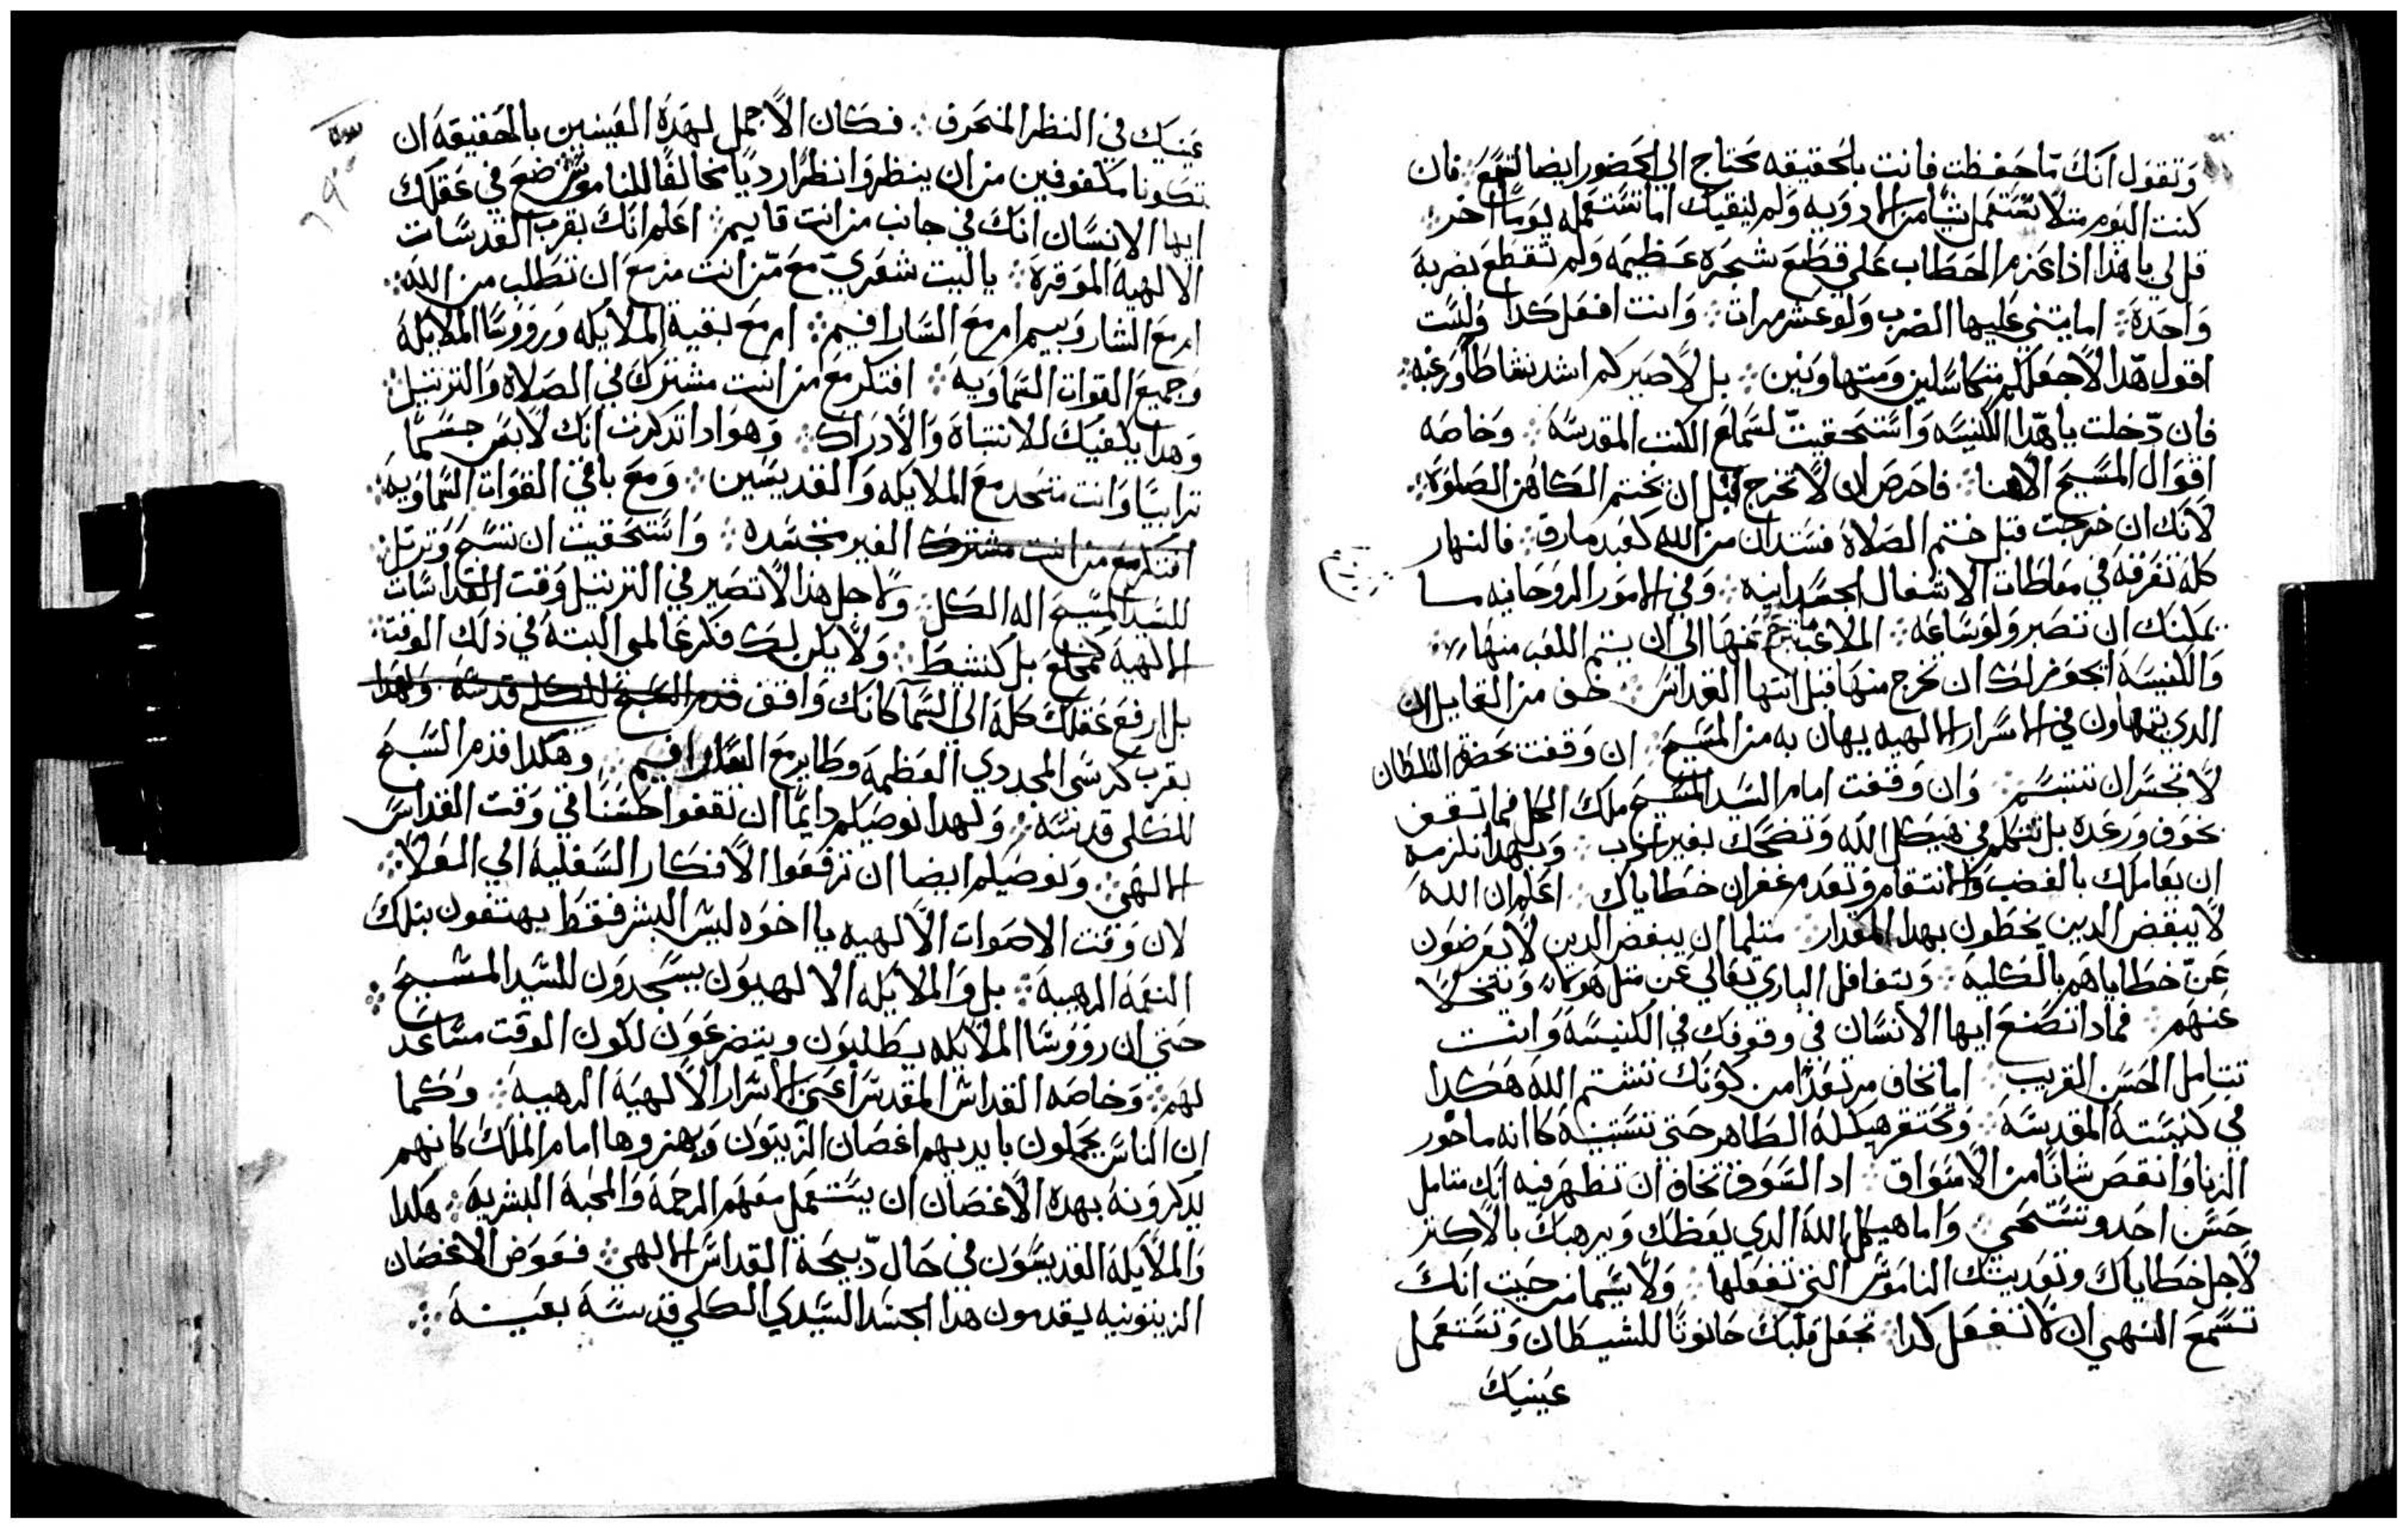 وتقول انك ما حفظت فانت بالحقيقه تحتاج الي الحضور ايضا لتسمع ⁘ فان
كنت اليوم مثلا تستعمل شيا من الادويه ولم ينقيك اما تستعمله يوما اخر ⁘
قل لي يا هذا اذا عزم الحطاب علي قطع شجره عظيمه ولم تقطع بضربة
واحدة ⁘ اما يثني عليها الضرب ولو عشر مرات ⁘ وانت افعل كدا ولست
اقول هدا لاجعلكم متكاسلين ومتهاونين ⁘ بل لاصيركم اشد نشاطا ورغبه ⁘
فان دخلت يا هدا الكنيسه واستحقيت لسماع الكتب المقدسة ⁘ وخاصه
اقوال المسيح الاهنا ⁘ فاحرص ان لا تخرج قبل ان يختم الكاهن الصلوة ⁘
لانك ان خرجت قبل ختم الصلاة فستدان من الله كعبد مارق ⁘ فالنهار
كله تفرقه في مفاطات الاشغال الجسدانيه ⁘ وفي الامور الروحانيه ما
يمكنك ان تصبر ولو ساعه ⁘ الملاعب ما تخرج عنها الي ان يتم اللعب منها ⁘
والكنيسة ايجوز لك ان تخرج منها قبل انتها القداس ⁘ خف من القايل ان
الدي يتهاون في الاسرار الالهيه يهان به من المسيح ⁘ ان وقفت بحضرة السلطان
لا تجسر ان تتبسم ⁘ وان وقفت امام السيد المسيح ملك الكل فما تقف
بخوف ورعدة بل تتكلم في هيكل الله وتضحك بغير ادب ⁘ وبهدا تلزمه
ان يعاملك بالغضب والانتقام وتعدم غفران خطاياك ⁘ اعلم ان الله
لا يبغض الدين يخطون بهدا المقدار ⁘ مثلما ان يبغض الدين لا يعرضون
عن خطاياهم بالكلية ⁘ ويتغافل الباري تعالي عن مثل هولاء ويتخلا
عنهم ⁘ فمادا تصنع ايها الانسان في وقوفك في الكنيسة وانت
تتامل الحسن القريب ⁘ اما تخاف مرتعدا من كونك تشتم الله هكدا
في كنيسته المقدسة ⁘ وتحتقر هيكله الطاهر حتي تستبينه كانه ماخور
الزنا وانقص شانا من الاسواق ⁘ اد السوق تخاف ان تظهر فيه انك متامل
حسن احد وتستحي ⁘ واما هيكل الله الدي يعظك ويرهبك بالاكثر
لاجل خطاياك وتعديتك الناموس التي تفعلها ⁘ ولا سيما من حيث انك
تسمع النهي ان لا تفعل كدا ⁘ تجعل قلبك حانوتا للشيطان وتستعمل
عينيك
عينيك في النظر المنحرف ⁘ فكان الاجمل لهدة العينين بالحقيقة ان
تكونا مكفوفين من ان ينظروا نظرا رديا مخالفا للناموس ⁘ ضع في عقلك
ايها الانسان انك في جانب من انت قايم ⁘ اعلم انك بقرب القدسات
الالهية الموقرة ⁘ يا ليت شعري مع من انت مزمع ان تطلب من الله ⁘
ام مع الشاروبيم ام مع السارافيم ⁘ ام مع بقية الملايكه وروؤسا الملايكة
وجميع القوات السماوية ⁘ افتكر مع من انت مشترك في الصلاة والترتيل ⁘
وهدا يكفيك للانتباة والادراك ⁘ وهو ادا تدكرت انك لابس جسما
ترابيا وانت متحد مع الملايكه والقديسين ⁘ ومع باقي القوات السماوية ⁘
افتكر مع من انت مشترك الغير متجسده ⁘ واستحقيت ان تسبح وترتل ⁘
للسيد المسيح اله الكل ⁘ ولاجل هدا لا تصير في الترتيل وقت القداسات
الالهية كمخلع بل كنشيط ⁘ ولا يكن لك فكر عالمي البتة في ذلك الوقت ⁘
بل ارفع عقلك كله الي السما كانك واقف قدم المسيح للكلي قدسه ولهدا
بقرب كرسي المجد دي العظمة وطاير مع السارافيم ⁘ وهكدا قدم السبح
للكلي قدسه ⁘ ولهدا نوصيكم دايما ان تقفوا حسنا في وقت القداس
الالهي ⁘ ونوصيكم ايضا ان ترفعوا الافكار السفلية الي العلا ⁘
لان وقت الاصوات الالهيه يا اخوه ليس البشر فقط يهتفون بتلك
النغمة الرهيبة ⁘ بل والملايكه الالهيون يسجدون للسيد المسيح ⁘
حتي ان روؤسا الملايكه يطلبون ويتضرعون لكون الوقت مساعد
لهم ⁘ وخاصه القداس المقدس اعني الاسرار الالهية الرهيبة ⁘ وكما
ان الناس يحملون بايديهم اغصان الزيتون ويهزوها امام الملك كانهم
يدكرونه بهدة الاغصان ان يستعمل معهم الرحمة والمحبة البشرية ⁘ هكدا
والملايكة القديسون في حال دبيحة القداس الالهي ⁘ فعوض الاغصان
الزيتونيه يقدمون هدا الجسد السيدي الكلي قدسة بعينه ⁘